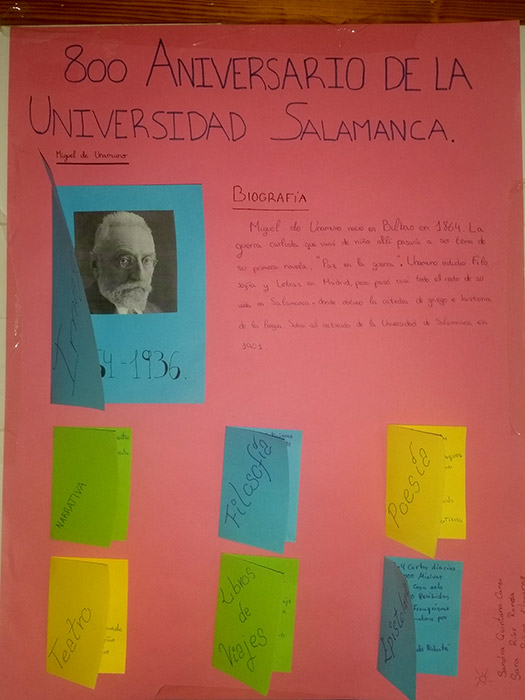 800 ANIVERSARIO DE LA
UNIVERSIDAD SALAMANCA.
Miguel de Unamuno
BIOGRAFÍA
Miguel de Unamuno nació en Bilbao en 1864. La
guerra carlista que vivió de niño allí pasaría a ser tema de
su primera novela, "Paz en la guerra". Unamuno estudió Filo
sofía y Letras en Madrid, pero pasó casi todo el resto de su
vida en Salamanca, donde obtuvo la cátedra de griego e historia
de la lengua. Subió al rectorado de la Universidad de Salamanca en
1901
64-1936.
NARRATIVA
Filosofía
Poesía
Teatro
Libros
de
Viajes
4 Cartas diarias
Casa
Recibidas
por
Sandra Quintana
Sara